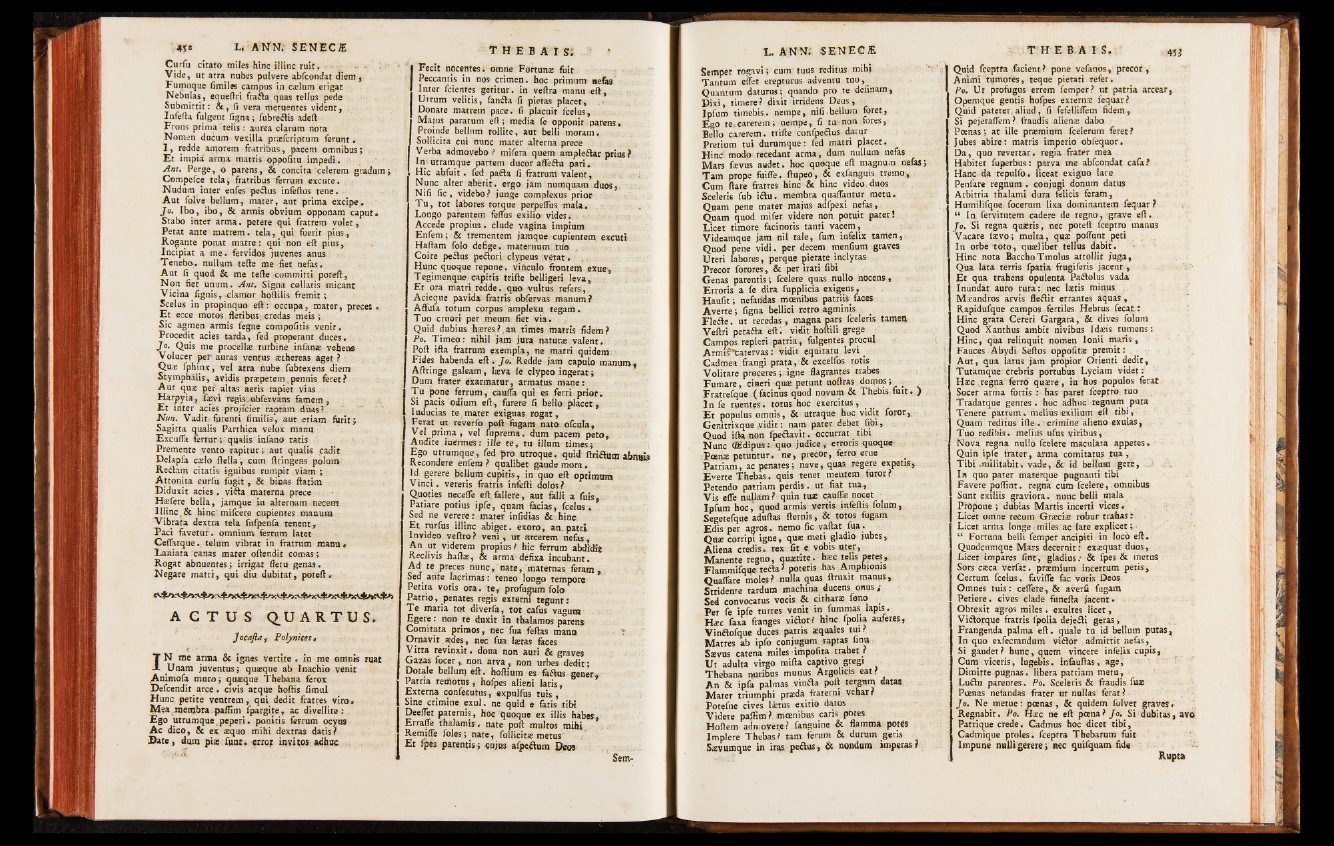 452 L. ANN. SENECÆ
Curſu citato miles hinc illinc ruit.
Vide, ut atra nubes pulvere abſcondat diem,
Fumoque ſimiles campus in cælum erigat
Nebulas, equeſtri fracta quas tellus pede
Submittit: &, ſi vera metuentes vident,
Infeſta fulgent ſigna; ſubrectis adeſt
Frons prima telis: aurea clarum nota
Nomen ducum vexilla præſcriptum ferunt.
I, redde amorem fratribus, pacem omnibus;
Et impia arma matris oppoſitu impedi.
Ant. Perge, o parens, & concita celerem gradum;
Compeſce tela, fratribus ferrum excute.
Nudum inter enſes pectus infeſtus tene.
Aut ſolve bellum, mater, aut prima excipe.
Jo. Ibo, ibo, & armis obvium opponam caput.
Stabo inter arma. petere qui fratrem volet,
Petat ante matrem. tela, qui fuerit pius,
Rogante ponat matre: qui non eſt pius,
Incipiat a me. fervidos juvenes anus
Tenebo. nullum teſte me fiet nefas.
Aut ſi quod & me teſte committi poteſt,
Non fiet unum. Ant. Signa collatis micant
Vicina ſignis, clamor hoſtilis fremit;
Scelus in propinquo eſt: occupa, mater, preces.
Et ecce motos fletibus credas meis;
Sic agmen armis ſegne compoſitis venit.
Procedit acies tarda, ſed properant duces.
Jo. Quis me procellæ turbine inſanæ vehens
Volucer per auras ventus æthereas aget?
Quæ ſphinx, vel atra nube ſubtexens diem
Stymphalis, avidis præpetem pennis feret?
Aut quæ per altas aeris rapiet vias
Harpyia, ſævi regis obſervans famem,
Et inter acies projiciet raptam duas?
Nun. Vadit furenti ſimilis, aut etiam furit;
Sagitta qualis Parthica velox manu
Excuſſa fertur; qualis inſano ratis
Premente vento rapitur; aut qualis cadit
Delapſa cælo ſtella, cum ſtringens polum
Rectam citatis ignibus rumpit viam;
Attonita curſu fugit, & binas ſtatim
Diduxit acies. victa materna prece
Hæſere bella, jamque in alternam necem
Illinc & hinc miſcere cupientes manum
Vibrata dextra tela ſuſpenſa tenent,
Paci favetur. omnium ferrum latet
Ceſſatque. telum vibrat in fratrum manu.
Laniata canas mater oſtendit comas;
Rogat abnuentes; irrigat fletu genas.
Negare matri, qui diu dubitat, poteſt.
ACTUS QUARTUS.
Jocaſta, Polynices.
IN me arma & ignes vertite. in me omnis ruat
Unam juventus; quæque ab Inachio venit
Animoſa muro; quæque Thebana ferox
Deſcendit arce. civis atque hoſtis ſimul
Hunc petite ventrem, qui dedit fratres viro.
Mea membra paſſim ſpargite, ac divellite:
Ego utrumque peperi. ponitis ferrum ocyus
Ac dico, & ex æquo mihi dextras datis?
Date, dum piæ ſunt. error invitos adhuc
THEBAIS.
Fecit nocentes. omne Fortunæ fuit
Peccantis in nos crimen. hoc primum nefas
Inter ſcientes geritur. in veſtra manu eſt,
Utrum velitis, ſancta ſi pietas placet,
Donate matrem pace. ſi placuit ſcelus,
Majus paratum eſt; media ſe opponit parens.
Proinde bellum tollite, aut belli moram.
Sollicita cui nunc mater alterna prece
Verba admovebo? miſera quem amplectar prius?
In utramque partem ducor affectu pari.
Hic abfuit. ſed pacta ſi fratrum valent,
Nunc alter aberit. ergo jam numquam duos,
Niſi ſic, videbo? junge complexus prior
Tu, tot labores totque perpeſſus mala.
Longo parentem feſſus exilio vides.
Accede propius. clude vagina impium
Enſem; & trementem jamque cupientem excuti
Haſtam ſolo defige. maternum tuo
Coire pectus pectori clypeus vetat.
Hunc quoque repone. vinculo frontem exue,
Tegimenque capitis triſte belligeri leva,
Et ora matri redde. quo vultus refers,
Acieque pavida fratris obſervas manum?
Affuſa totum corpus amplexu tegam.
Tuo cruori per meum fiet via.
Quid dubius hæres? an times matris fidem?
Po. Timeo: nihil jam jura naturæ valent.
Poſt iſta fratrum exempla, ne matri quidem
Fides habenda eſt. Jo. Redde jam capulo manum,
Aſtringe galeam, læva ſe clypeo ingerat;
Dum frater exarmatur, armatus mane:
Tu pone ferrum, cauſſa qui es ferri prior.
Si pacis odium eſt, furere ſi bello placet,
Inducias te mater exiguas rogat,
Ferat ut reverſo poſt fugam nato oſcula,
Vel prima, vel ſuprema. dum pacem peto,
Audite inermes: ille te, tu illum times;
Ego utrumque, ſed pro utroque. quid ſtrictum abnuis
Recondere enſem? qualibet gaude mora.
Id gerere bellum cupitis, in quo eſt optimum
Vinci. vereris fratris infeſti dolos?
Quoties neceſſe eſt fallere, aut falli a ſuis,
Patiare potius ipſe, quam facias, ſcelus.
Sed ne verere: mater inſidias & hinc
Et rurſus illinc abiget. exoro, an patri
Invideo veſtro? veni, ut arcerem nefas,
An ut viderem propius? hic ferrum abdidit
Reclivis haſtæ, & arma defixa incubant.
Ad te preces nunc, nate, maternas feram,
Sed ante lacrimas: teneo longo tempore
Petita votis ora. te, profugum ſolo
Patrio, penates regis externi tegunt:
Te maria tot diverſa, tot caſus vagum
Egere: non te duxit in thalamos parens
Comitata primos, nec ſua feſtas manu
Ornavit ædes, nec ſua lætas faces
Vitta revinxit. dona non auri & graves
Gazas ſocer, non arva, non urbes dedit;
Dotale bellum eſt. hoſtium es factus gener,
Patria remotus, hoſpes alieni laris,
Externa conſecutus, expulſus tuis,
Sine crimine exul. ne quid e fatis tibi
Deeſſet paternis, hoc quoque ex illis habes,
Erraſſe thalamis. nate poſt multos mihi
Remiſſe ſoles; nate, ſollicitæ metus
Et ſpes parentis; cujus aſpectum Deos
Sem-
L. ANN. SENECÆ
Semper rogavi; cum tuus reditus mihi
Tantum eſſet erepturus adventu tuo,
Quantum daturus; quando pro te deſinam,
Dixi, timere? dixit irridens Deus,
Ipſum timebis. nempe, niſi bellum foret,
Ego te carerem; nempe, ſi tu non fores,
Bello carerem. triſte conſpectus datur
Pretium tui durumque: ſed matri placet.
Hinc modo recedant arma, dum nullum nefas
Mars ſævus audet. hoc quoque eſt magnum nefas;
Tam prope fuiſſe. ſtupeo, & exſanguis tremo,
Cum ſtare fratres hinc & hinc video duos
Sceleris ſub ictu. membra quaſſantur metu.
Quam pene mater majus adſpexi nefas,
Quam quod miſer videre non potuit pater!
Licet timore facinoris tanti vacem,
Videamque jam nil tale, ſum infelix tamen,
Quod pene vidi. per decem menſium graves
Uteri labores, perque pietate inclytas
Precor ſorores, & per irati ſibi
Genas parentis; ſcelere quas nullo nocens,
Erroris a ſe dira ſupplicia exigens,
Hauſit; nefandas mœnibus patriis faces
Averte; ſigna bellici retro agminis
Flecte. ut recedas, magna pars ſceleris tamen
Veſtri peracta eſt. vidit hoſtili grege
Campos repleri patria, fulgentes procul
Armis catervas: vidit equitatu levi
Cadmea frangi prata, & excelſos rotis
Volitare proceres; igne flagrantes trabes
Fumare, cineri quæ petunt noſtras domos;
Fratreſque (facinus quod novum & Thebis fuit.)
In ſe ruentes. totus hoc exercitus,
Et populus omnis, & utraque hoc vidit ſoror,
Genitrixque vidit: nam pater debet ſibi,
Quod iſta non ſpectavit. occurrat tibi
Nunc Œdipus: quo judice, erroris quoque
Pœnæ petuntur. ne, precor, ferro erue
Patriam, ac penates; neve, quas regere expetis,
Everte Thebas. quis tenet mentem furor?
Petendo patriam perdis. ut fiat tua,
Vis eſſe nullam? quin tuæ cauſſæ nocet
Ipſum hoc, quod armis vertis infeſtis ſolum,
Segeteſque aduſtas ſternis, & totos fugam
Edis per agros. nemo ſic vaſtat ſua.
Quæ corripi igne, quæ meti gladio jubes,
Aliena credis. rex ſit e vobis uter,
Manente regno, quærite. hæc telis petes,
Flammiſque tecta? poteris has Amphionis
Quaſſare moles? nulla quas ſtruxit manus,
Stridente tardum machina ducens onus;
Sed convocatus vocis & citharæ ſono
Per ſe ipſe turres venit in ſummas lapis.
Hæc ſaxa franges victor? hinc ſpolia auferes,
Vinctoſque duces patris æquales tui?
Matres ab ipſo conjugum raptas ſinu
Sævus catena miles impoſita trahet?
Ut adulta virgo miſta captivo gregi
Thebana nuribus munus Argolicis eat?
An & ipſa palmas vincta poſt tergum datas
Mater triumphi præda fraterni vehar?
Poteſne cives lætus exitio datos
Videre paſſim? mœnibus caris potes
Hoſtem admovere? ſanguine & flamma potes
Implere Thebas? tam ferum & durum geris
Sævumque in iras pectus, & nondum imperas?
THEBAIS. 453
Quid ſceptra facient? pone veſanos, precor,
Animi tumores, teque pietati refer.
Po. Ut profugus errem ſemper? ut patria arcear,
Opemque gentis hoſpes externæ ſequar?
Quid paterer aliud, ſi fefelliſſem fidem,
Si pejeraſſem? fraudis alienæ dabo
Pœnas; at ille præmium ſcelerum feret?
Jubes abire: matris imperio obſequor.
Da, quo revertar. regia frater mea
Habitet ſuperbus: parva me abſcondat caſa?
Hanc da repulſo. liceat exiguo lare
Penſare regnum. conjugi donum datus
Arbitria thalami dura felicis feram,
Humiliſque ſocerum lixa dominantem ſequar?
“ In ſervitutem cadere de regno, grave eſt.
Jo. Si regna quæris, nec poteſt ſceptro manus
Vacare ſævo; multa, quæ poſſunt peti
In orbe toto, quælibet tellus dabit.
Hinc nota Baccho Tmolus attollit juga,
Qua lata terris ſpatia frugiferis jacent,
Et qua trahens opulenta Pactolus vada
Inundat auro rura: nec lætis minus
Mæandros arvis flectit errantes aquas,
Rapiduſque campos fertiles Hebrus ſecat:
Hinc grata Cereri Gargara, & dives ſolum
Quod Xanthus ambit nivibus Idæis tumens:
Hinc, qua relinquit nomen Ionii maris,
Fauces Abydi Seſtos oppoſitæ premit:
Aut, qua latus jam propior Orienti dedit,
Tutamque crebris portubus Lyciam videt:
Hæc regna ferro quære, in hos populos ferat
Socer arma fortis: has paret ſceptro tuo
Tradatque gentes. hoc adhuc regnum puta
Tenere patrem. melius exilium eſt tibi,
Quam reditus iſte. crimine alieno exulas,
Tuo redibis. melius uſus viribus,
Nova regna nullo ſcelere maculata appetes.
Quin ipſe frater, arma comitatus tua,
Tibi militabit. vade, & id bellum gere,
In quo pater materque pugnanti tibi
Favere poſſint. regna cum ſcelere, omnibus
Sunt exiliis graviora. nunc belli mala
Propone; dubias Martis incerti vices.
Licet omne tecum Græciæ robur trahas:
Licet arma longe miles ac late explicet;
“ Fortuna belli ſemper ancipiti in loco eſt.
Quodcumque Mars decernit: exæquat duos,
Licet impares ſint, gladius: & ſpes & metus
Sors cæca verſat. præmium incertum petis,
Certum ſcelus. faviſſe fac votis Deos
Omnes tuis: ceſſere, & averſi fugam
Petiere. cives clade funeſta jacent.
Obtexit agros miles. exultes licet,
Victorque fratris ſpolia dejecti geras,
Frangenda palma eſt. quale tu id bellum putas,
In quo exſecrandum victor admittit nefas,
Si gaudet? hunc, quem vincere infelix cupis,
Cum viceris, lugebis. infauſtas, age,
Dimitte pugnas. libera patriam metu,
Luctu parentes. Po. Sceleris & fraudis ſuæ
Pœnas nefandas frater ut nullas ferat?
Jo. Ne metue: pœnas, & quidem ſolvet graves.
Regnabit. Po. Hæc ne eſt pœna? Jo. Si dubitas, avo
Patrique crede. Cadmus hoc dicet tibi,
Cadmique proles. ſceptra Thebarum fuit
Impune nulli gerere; nec quiſquam fide
Rupta